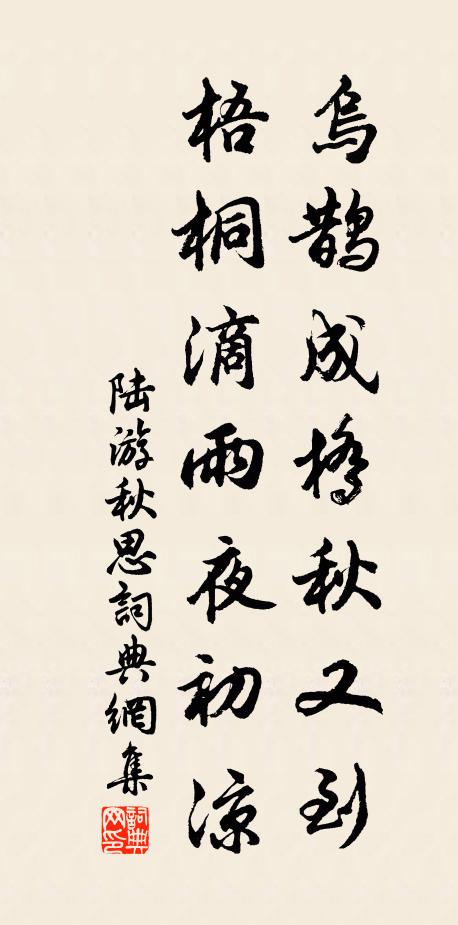 烏鵲成橋秋又到
梧桐滴雨夜初涼
陆游秋思詞典網集
詞典網印